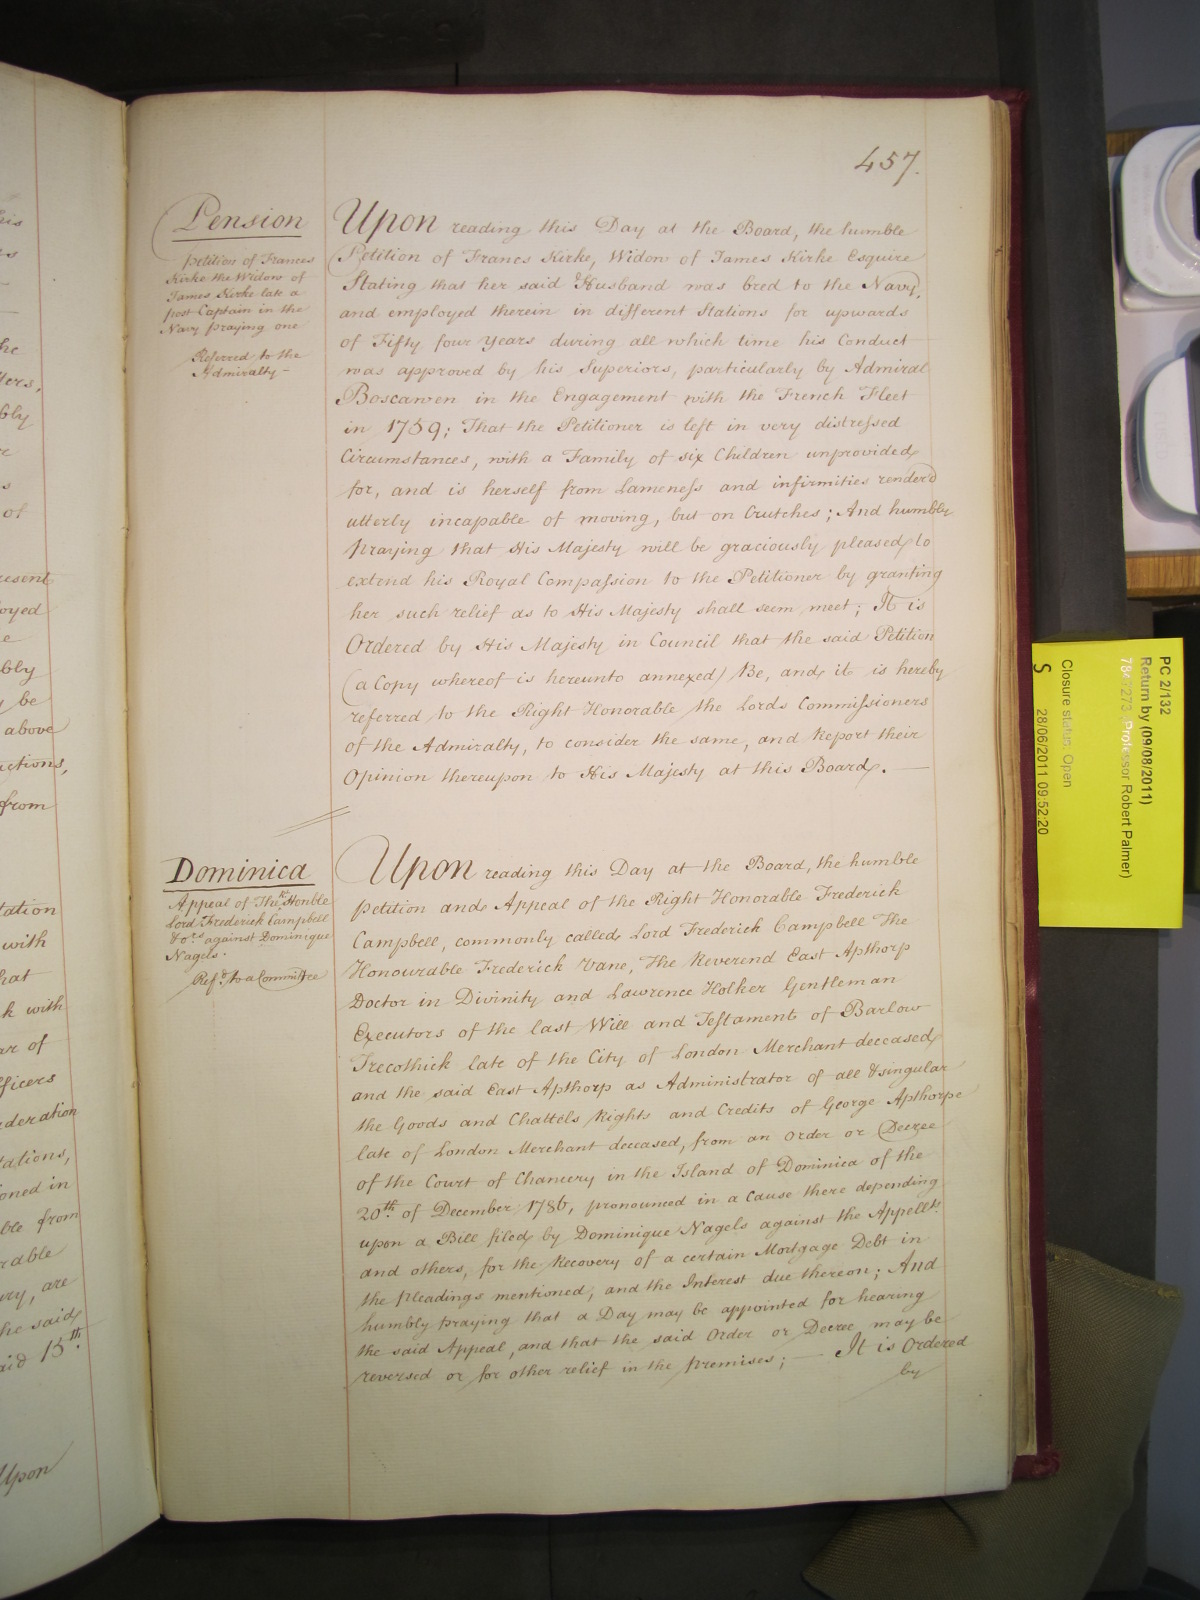 457.
Pension
Petition of Frances
Kirke the Widow of
James Kirke late a
post Captain in the
Navy praying one
Referred to the
Admiralty -
Upon reading this Day at the Board, the humble
Petition of Frances Kirke, Widow of James Kirke Esquire
Stating that her said Husband was bred to the Navy,
and employed therein in different Stations for upwards
of Fifty four Years during all which time his Conduct
was approved by his Superiors, particularly by Admiral
Boscawen in the Engagement with the French Fleet
in 1759; That the Petitioner is left in very distressed
Circumstances, with a Family of six Children unprovided
for, and is herself from Lameness and infirmities render'd
utterly incapable of moving, but on Crutches; And humbly
praying that His Majesty will be graciously pleased to
extend his Royal Compassion to the Petitioner by granting
her such relief as to His Majesty shall seem meet; It is
Ordered by His Majesty in Council that the said Petition
(a Copy whereof is hereunto annexed) Be, and it is hereby
referred to the Right Honorable the Lords Commissioners
of the Admiralty, to consider the same, and Report their
Opinion thereupon to His Majesty at this Board. —
Dominica
Appeal of The Rt. Honble
Lord Frederick Campbell
& ors. against Dominique
Nagels.
Refd. to a Committee
Upon reading this Day at the Board, the humble
Petition and Appeal of the Right Honorable Frederick
Campbell, commonly called Lord Frederick Campbell The
Honourable Frederick Vane, The Reverend East Apthorp
Doctor in Divinity and Lawrence Holker Gentleman
Executors of the last Will and Testament of Barlow
Trecothick late of the City of London Merchant deceased,
and the said East Apthorp as Administrator of all & singular
the Goods and Chattels Rights and Credits of George Apthorpe
late of London Merchant deceased, from an Order or Decree
of the Court of Chancery in the Island of Dominica of the
20th. of December 1786, pronounced in a Cause there depending
upon a Bill filed by Dominique Nagels against the Appellts.
and others, for the Recovery of a certain Mortgage Debt in
the pleadings mentioned, and the Interest due thereon; And
humbly praying that a Day may be appointed for hearing
the said Appeal, and that the said Order or Decree may be
reversed or for other relief in the premises; — It is Ordered
by
PC 2/132
Return by (09/08/2011)
Professor Robert Palmer)
Closure status: Open
S 28/06/2011 09:52:20
of
resent
oyed
e
bly
y be
above
uctions,
from
tation
with
hat
k with
ar of
fficers
ideration
tations,
ioned in
ble from
rable
ery, are
he said
aid 15th.
Upon